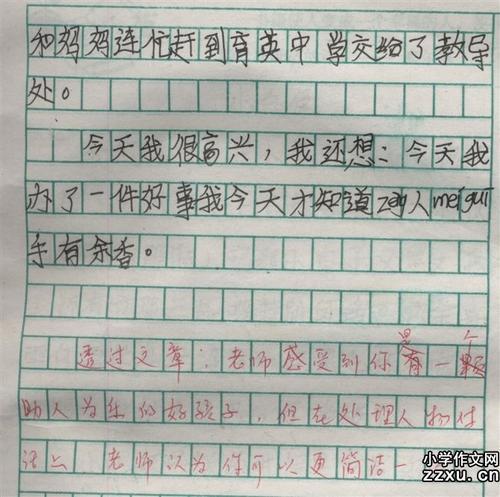 和妈妈连忙赶到育英中学交给了教导
处。
今天我很高兴，我还想：今天我
办了一件好事我今天才知道zeng人meigui
手有余香。
是 个
透过文章，老师感受到你有一颗
助人为乐的好孩子，但在处理人物对
话上 老师认为你可以更简洁一
小学作文网
zzxu.cn